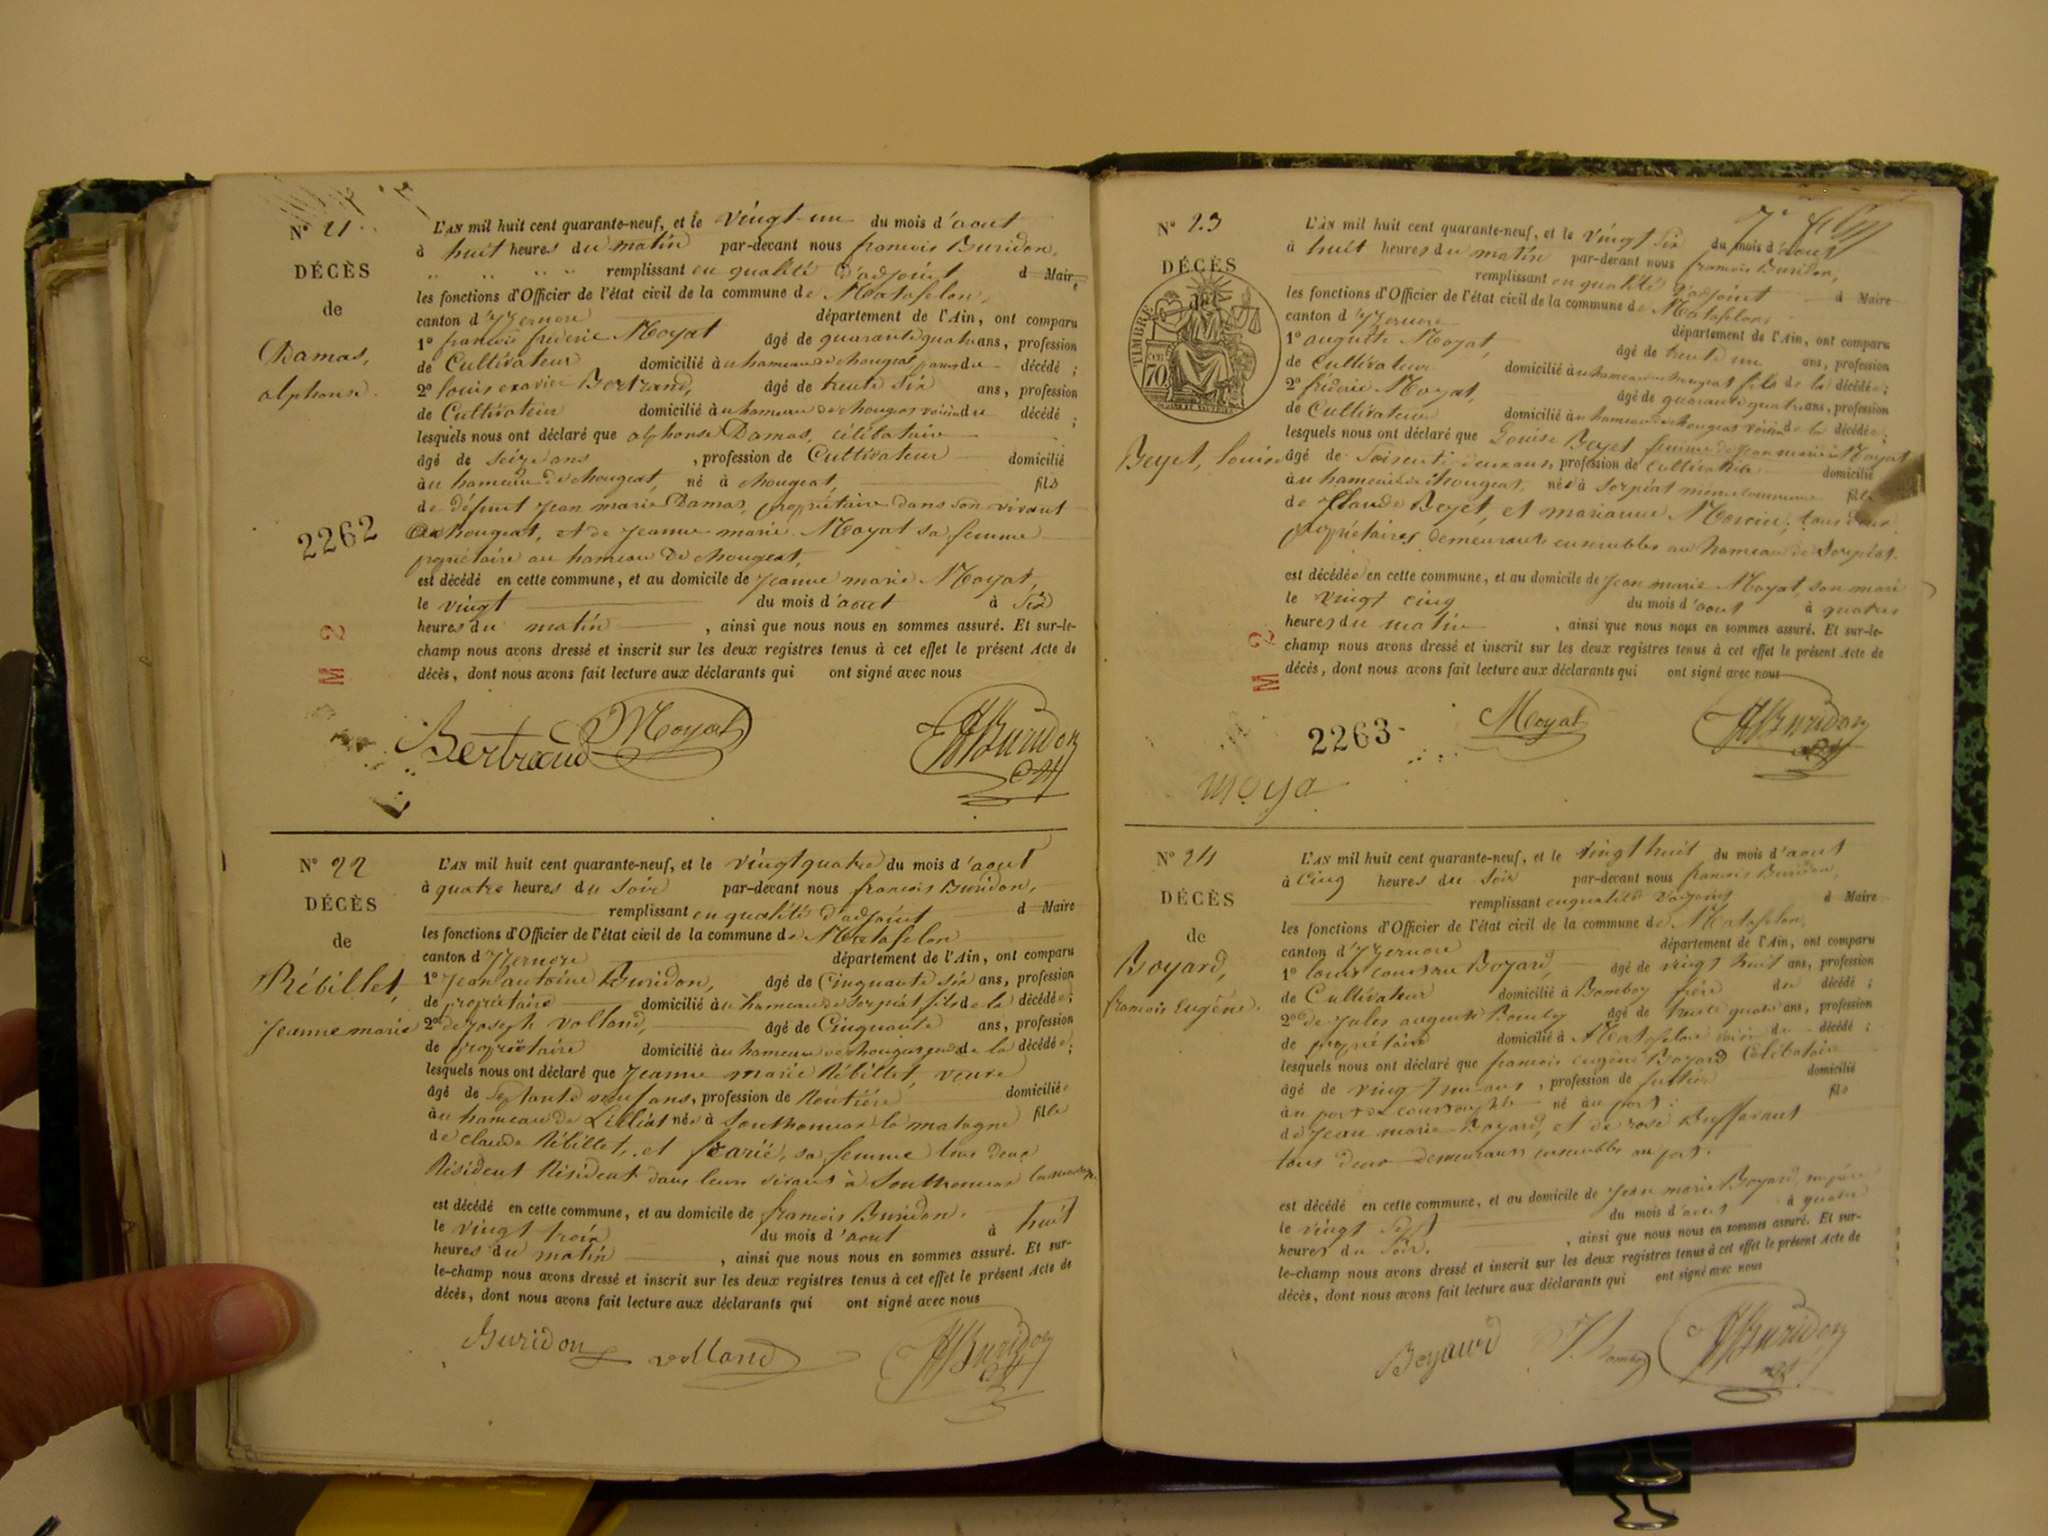 N° 21
DÉCÈS
de
Damas,
alphonse.
2262
M 2
L'AN mil huit cent quarante-neuf, et le vingt-un du mois d'aout
à huit heures du matin par-devant nous francois Buridon,
remplissant en qualité d'adjoint d Maire
les fonctions d'Officier de l'état civil de la commune de Matafelon,
canton d'Izernore département de l'Ain, ont comparu
1° francois frédéric Moyat âgé de quarante quatre ans, profession
de Cultivateur domicilié à u hameau de chougeat, du décédé ;
2° louis exavier Bertrand, âgé de trente six ans, profession
de Cultivateur domicilié à u hameau de chougeat voisin du décédé ;
lesquels nous ont déclaré que alphonse Damas, célibataire
âgé de seize ans, profession de Cultivateur domicilié
à u hameau de chougeat, né à chougeat, fils
de défunt Jean marie Damas, propriétaire dans son vivant
à chougeat, et de Jeanne marie Moyat sa femme
propriétaire au hameau de chougeat,
est décédé en cette commune, et au domicile de Jeanne marie Moyat,
le vingt du mois d'aout à six
heures du matin, ainsi que nous nous en sommes assuré. Et sur-le-
champ nous avons dressé et inscrit sur les deux registres tenus à cet effet le présent Acte de
décès, dont nous avons fait lecture aux déclarants qui ont signé avec nous
Bertrand Moyat Buridon
N° 22
DÉCÈS
de
Rébillet,
Jeanne marie
L'AN mil huit cent quarante-neuf, et le vingt quatre du mois d'aout
à quatre heures du soir par-devant nous francois Buridon,
remplissant en qualité d'adjoint d Maire
les fonctions d'Officier de l'état civil de la commune de Matafelon
canton d'Izernore département de l'Ain, ont comparu
1° Jean antoine Buridon, âgé de Cinquante six ans, profession
de propriétaire domicilié à u hameau de sorpiat fils de la décédée ;
2° de Joseph volland, âgé de Cinquante ans, profession
de propriétaire domicilié à u hameau de chougeat de la décédée ;
lesquels nous ont déclaré que Jeanne marie Rébillet, veuve
âgé de Septante neuf ans, profession de Rentière domiciliée
à u hameau de née à Southonnax la matagne fille
de claude Rébillet, et sa femme tous deux
Résident Résident dans leurs vivant à Southonnax
est décédé en cette commune, et au domicile de francois Buridon.
le vingt trois du mois d'aout à huit
heures du matin, ainsi que nous nous en sommes assuré. Et sur-
le-champ nous avons dressé et inscrit sur les deux registres tenus à cet effet le présent Acte de
décès, dont nous avons fait lecture aux déclarants qui ont signé avec nous
Buridon volland Buridon
N° 23
DÉCÈS
TIMBRE
70
Beyet, louise
M 2
2263
7e
L'AN mil huit cent quarante-neuf, et le vingt six du mois d'aout
à huit heures du matin par-devant nous francois Buridon,
remplissant en qualité d'adjoint d Maire
les fonctions d'Officier de l'état civil de la commune de Matafelon
canton d'Izernore département de l'Ain, ont comparu
1° auguste Moyat, âgé de trente un ans, profession
de cultivateur domicilié à u hameau de chougeat fils de la décédée ;
2° frédéric Moyat, âgé de quarante quatre ans, profession
de Cultivateur domicilié à u hameau de chougeat voisin de la décédée ;
lesquels nous ont déclaré que Louise Beyet femme de Jean marie Moyat
âgé de soixante deux ans, profession de Cultivatrice domicilié
à u hameau de chougeat, née à sorpiat même commune fille
de Claude Beyet, et marianne tous deux
propriétaires demeurants ensembles au hameau de Sorpiat.
est décédée en cette commune, et au domicile de Jean marie Moyat, son mari
le vingt cinq du mois d'aout à quatre
heures du matin, ainsi que nous nous en sommes assuré. Et sur-le-
champ nous avons dressé et inscrit sur les deux registres tenus à cet effet le présent Acte de
décès, dont nous avons fait lecture aux déclarants qui ont signé avec nous
Moyat Buridon
moya
N° 24
DÉCÈS
de
Boyard,
francois Eugène.
L'AN mil huit cent quarante-neuf, et le vingt huit du mois d'aout
à Cinq heures du soir par-devant nous francois Buridon,
remplissant en qualité d'adjoint d Maire
les fonctions d'Officier de l'état civil de la commune de Matafelon,
canton d'Izernore département de l'Ain, ont comparu
1° louis Boyard, âgé de vingt huit ans, profession
de Cultivateur domicilié à Bomboy frère du décédé ;
2° de Jules auguste âgé de trente quatre ans, profession
de propriétaire domicilié à Matafelon voisin du décédé ;
lesquels nous ont déclaré que francois eugène Boyard Célibataire
âgé de vingt un ans, profession de domicilié
à u port de né au port : fils
de Jean marie Boyard, et de rose Buffavant
tous deux demeurants ensembles au port.
est décédé en cette commune, et au domicile de Jean marie Boyard, son père
le vingt sept du mois d'aout à quatre
heures du soir, ainsi que nous nous en sommes assuré. Et sur-
le-champ nous avons dressé et inscrit sur les deux registres tenus à cet effet le présent Acte de
décès, dont nous avons fait lecture aux déclarants qui ont signé avec nous
Boyard Buridon